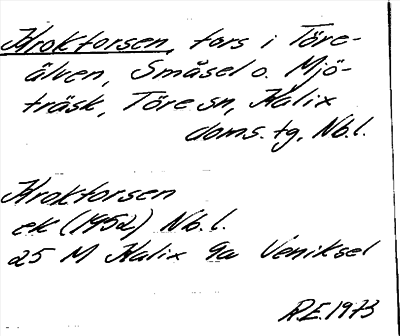 Kroktorsen, fors i Töre-
älven, Småsel o. Mjö-
träsk, Töre sn, Kalix
doms. tg, Nb.l.
Kroktorsen
ek (1952) Nb.l.
25 M Kalix 9a Veniksel
R.E. 1973